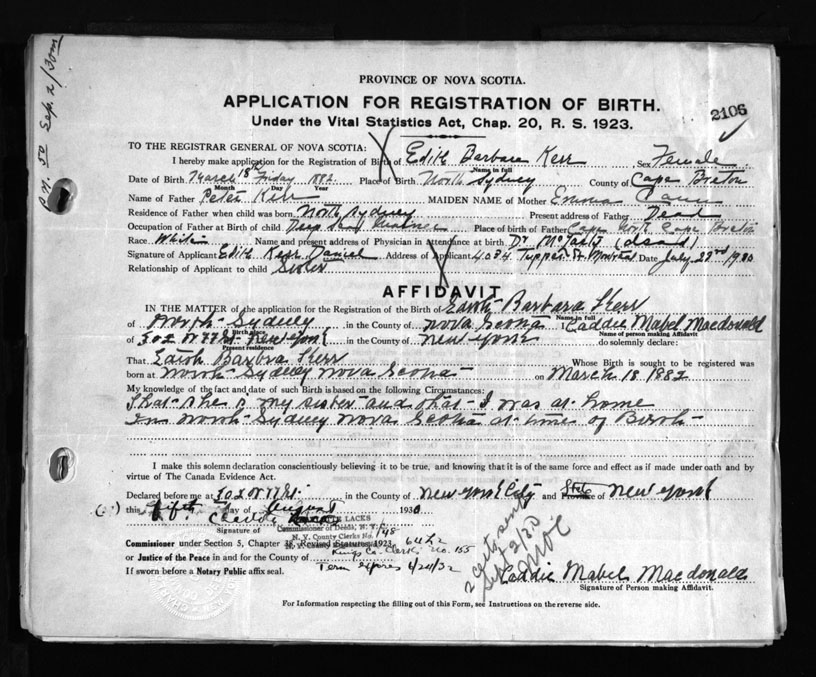 P.N. 50 Sep. 2/30
PROVINCE OF NOVA SCOTIA.
APPLICATION FOR REGISTRATION OF BIRTH.
2106
Under the Vital Statistics Act, Chap. 20, R. S. 1923.
TO THE REGISTRAR GENERAL OF NOVA SCOTIA:
I hereby make application for the Registration of Birth of Edith Barbara Kerr Sex Female
Name in full
Date of Birth March 18th Friday 1882 Place of Birth North Sydney County of Cape Breton
Month Day Year
Name of Father Peter Kerr MAIDEN NAME of Mother Emma
Residence of Father when child was born North Sydney Present address of Father Dead
Occupation of Father at Birth of child Deep Sea Place of birth of Father Cape North Cape Breton
Race White Name and present address of Physician in Attendance at birth Dr (dead)
Signature of Applicant Edith Kerr Daniel Address of Applicant 4034 Tupper St Montreal Date July 23rd 1930
Relationship of Applicant to child Sister
AFFIDAVIT
IN THE MATTER of the application for the Registration of the Birth of Edith Barbara Kerr
Name in full
of North Sydney in the County of Nova Scotia I Caddie Mabel Macdonald
Birth place Name of person making Affidavit
of 302 W 77 St. New York in the County of New York do solemnly declare:
Present residence
That Edith Barbra Kerr Whose Birth is sought to be registered was
born at North Sydney Nova Scotia on March 18 1882
My knowledge of the fact and date of such Birth is based on the following Circumstances:
That she is my sister and that I was at home
in North Sydney Nova Scotia at time of Birth
I make this solemn declaration conscientiously believing it to be true, and knowing that it is of the same force and effect as if made under oath and by
virtue of The Canada Evidence Act.
Declared before me at 302 W 77 St. in the County of New York City and State Province of New York
this fifth day of August 1930
Claude LACKS
Signature of Commissioner of Deeds, N. Y.
N. Y. County Clerks No. 148
Commissioner under Section 5, Chapter Revised Statutes, 1923
N. Y. County 64
or Justice of the Peace in and for the County of Kings Co. Clerks No. 155
If sworn before a Notary Public affix seal. Term Expires 4/20/32
2 certs sent
Sep 2/30
Caddie Mabel Macdonald
Signature of Person making Affidavit.
For Information respecting the filling out of this Form, see Instructions on the reverse side.